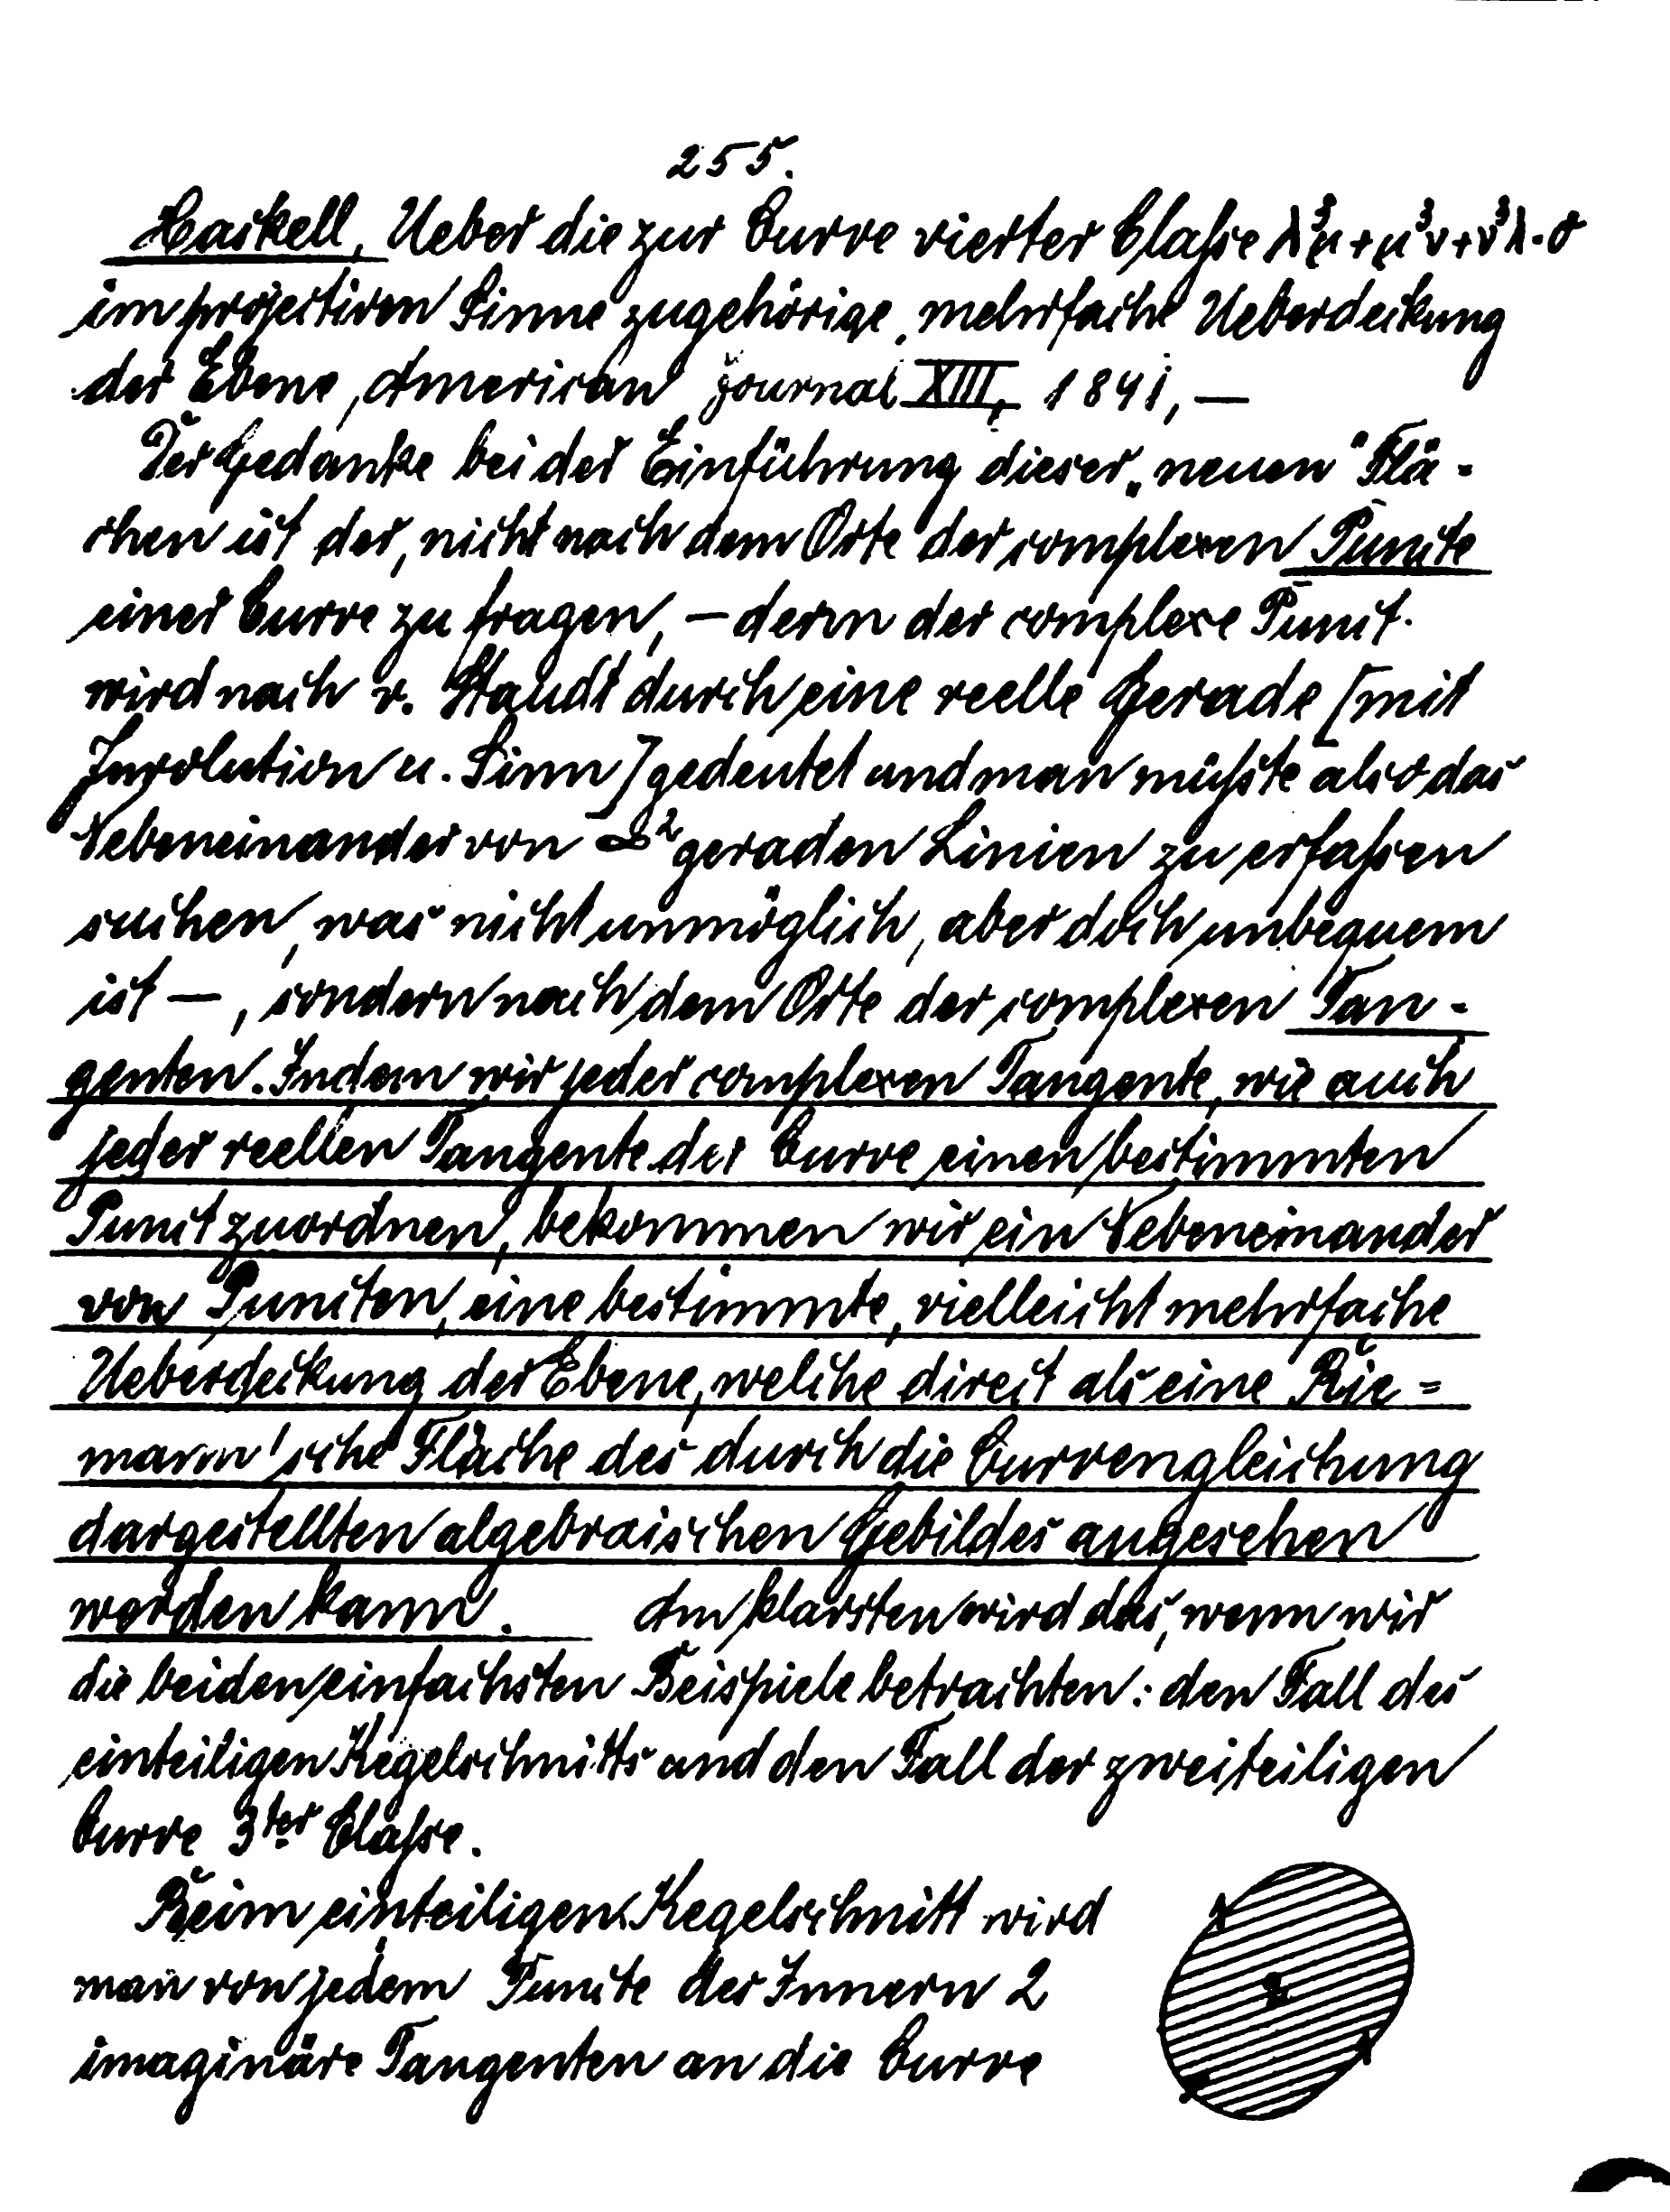 255.
Haskell, Ueber die zur Curve vierter Classe λ³μ+μ³ν+ν³λ=0
im projectiven Sinne zugehörige, mehrfache Ueberdeckung
der Ebene, American Journal XIII, 1891, —
Der Gedanke bei der Einführung dieser „neuen“ Flä-
chen ist der, nicht nach dem Orte der complexen Puncte
einer Curve zu fragen, — denn der complexe Punct
wird nach v. Staudt durch eine reelle Gerade [mit
Involution u. Sinn] gedeutet und man müsste also das
Nebeneinander von ∞² geraden Linien zu erfassen
suchen, was nicht unmöglich, aber doch unbequem
ist —, sondern nach dem Orte der complexen Tan-
genten. Indem wir jeder complexen Tangente, wie auch
jeder reellen Tangente der Curve einen bestimmten
Punct zuordnen, bekommen wir ein Nebeneinander
von Puncten, eine bestimmte, vielleicht mehrfache
Ueberdeckung der Ebene, welche direct als eine Rie-
mann'sche Fläche des durch die Curvengleichung
dargestellten algebraischen Gebildes angesehen
werden kann. Am klarsten wird das, wenn wir
die beiden einfachsten Beispiele betrachten: den Fall des
einteiligen Kegelschnitts und den Fall der zweiteiligen
Curve 3ter Classe.
Beim einteiligen Kegelschnitt wird
man von jedem Puncte des Innern 2
imaginäre Tangenten an die Curve